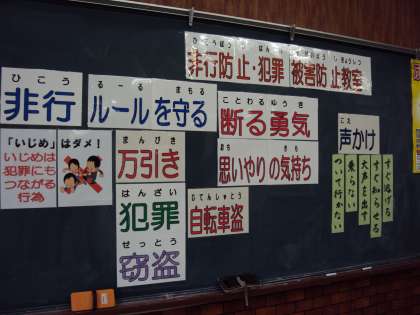 ひこうぼうし はんざい
非行防止・犯罪
しきょうしつ
被害防止教室
ひこう
非行
るーる まもる
ルールを守る
ことわるゆうき
断る勇気
こえ
声かけ
おも きも
思いやりの気持ち
「いじめ」はダメ!
いじめは
犯罪にも
つながる
行為
まんびき
万引き
はんざい
犯罪
せっとう
窃盗
じてんしゃとう
自転車盗
すぐ逃げる
すぐ知らせる
大声を出す
乗らない
ついて行かない